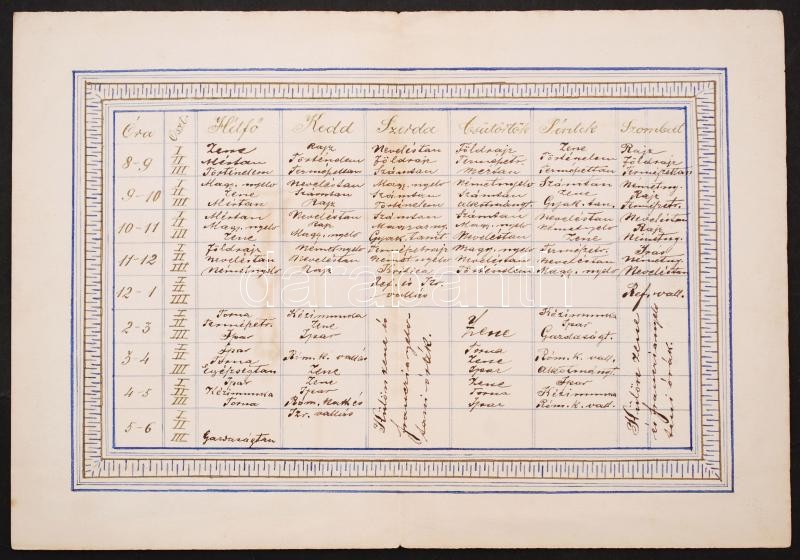 Óra Oszt. Hétfő Kedd Szerda Csütörtök Péntek Szombat
I Zene Rajz Neveléstan Földrajz Zene Rajz
8-9 II Mértan Történelem Földrajz Termépetr. Történelem Földrajz
III Történelem Természettan Számtan Mértan Természettan Természettan
I Magy. nyelv Neveléstan Magy. nyelv Németnyelv Számtan Németny.
9-10 II Zene Számtan Számtan Magy. nyelv Zene Rajz
III Mértan Rajz Történelem Alkotmányt. Gyak. tan. Termépetr.
I Mértan Neveléstan Számtan Számtan Neveléstan Neveléstan
10-11 II Magy. nyelv Rajz Magyar ny. Magy. nyelv Németnyelv Rajz
III Zene Magy. nyelv Gyak. tanít. Neveléstan Zene Németny.
I Földrajz Németnyelv Természetrajz Földrajz Termépetr. Ipar
11-12 II Neveléstan Neveléstan Német nyelv Neveléstan Magy. nyelv Németny.
III Németnyelv Rajz Fizika Történelem Magy. nyelv Neveléstan
I Ref. és Izr.
12-1 II vallás Ref. vall.
III
I Torna Kézimunka Kézimunka
2-3 II Termépetr. Zene Zene Ipar
III Ipar Ipar Gazdaságt.
I Ipar Torna
3-4 II Torna Róm. k. vallás Zene Róm. k. vall.
III Egészségtan Zene Ipar Alkotmányt.
I Ipar Zene Zene Ipar
4-5 II Kézimunka Ipar Torna Kézimunka
III Torna Róm. kath. és Ipar Róm. k. vall.
I Izr. vallás
5-6 II
III Gazdaságtan
Külön zene és
francianyelv-
tani órák.
Külön zene
és francianyelv
tani órák.
darabanth